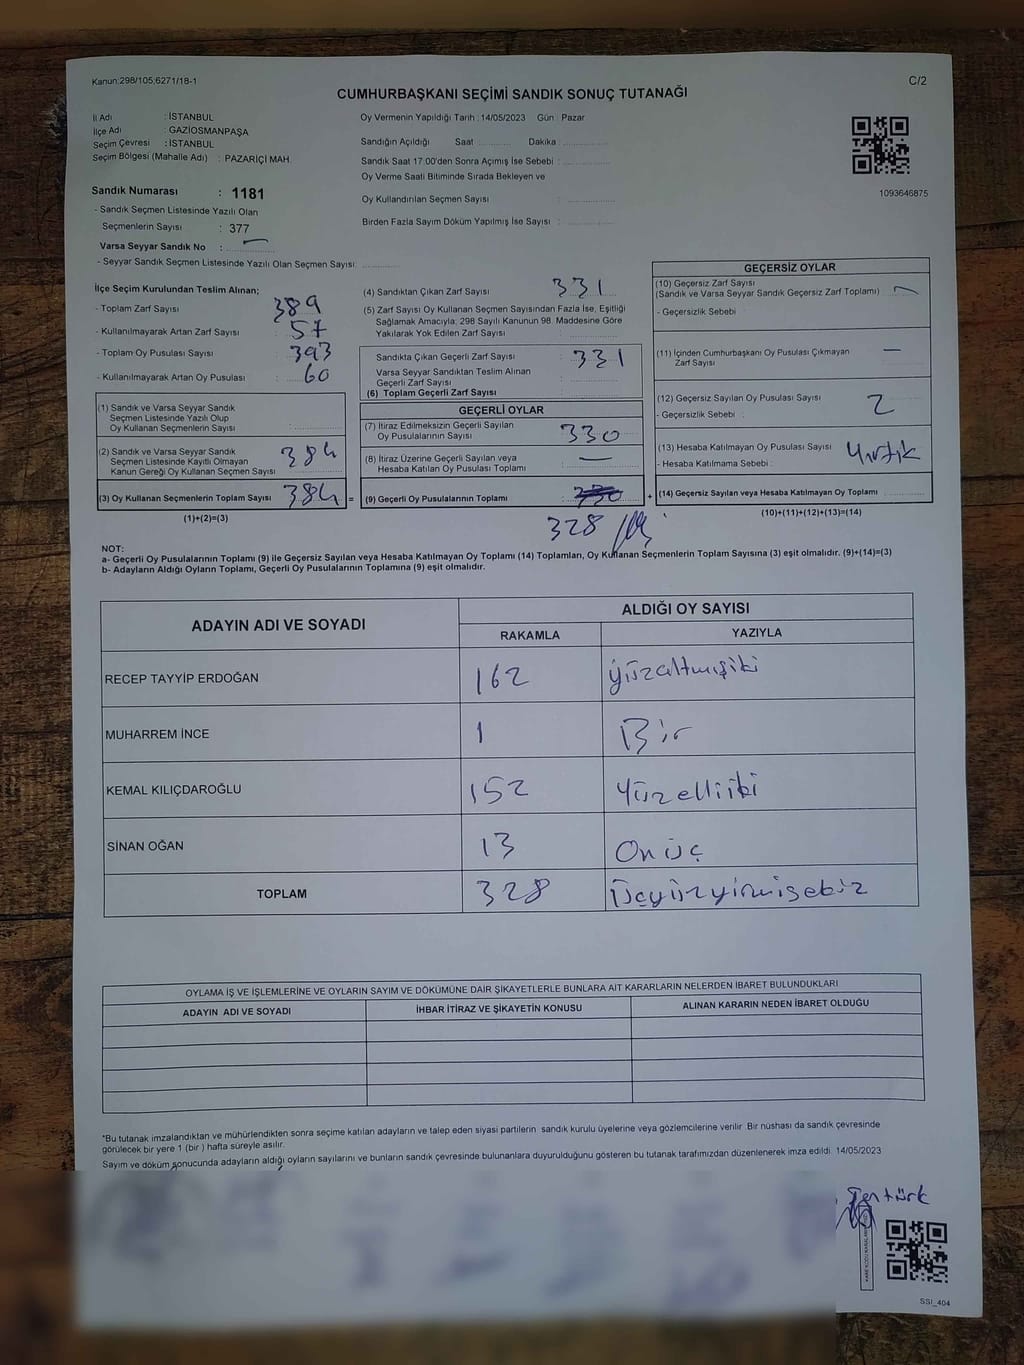 Kanun:298/105,6271/18-1
C/2
CUMHURBAŞKANI SEÇİMİ SANDIK SONUÇ TUTANAĞI
İl Adı : İSTANBUL
İlçe Adı : GAZİOSMANPAŞA
Seçim Çevresi : İSTANBUL
Seçim Bölgesi (Mahalle Adı) : PAZARİÇİ MAH.
Sandık Numarası : 1181
- Sandık Seçmen Listesinde Yazılı Olan
Seçmenlerin Sayısı : 377
Varsa Seyyar Sandık No : —
- Seyyar Sandık Seçmen Listesinde Yazılı Olan Seçmen Sayısı:
Oy Vermenin Yapıldığı Tarih : 14/05/2023 Gün : Pazar
Sandığın Açıldığı Saat : Dakika :
Sandık Saat 17.00'den Sonra Açımış İse Sebebi :
Oy Verme Saati Bitiminde Sırada Bekleyen ve
Oy Kullandırılan Seçmen Sayısı :
Birden Fazla Sayım Döküm Yapılmış İse Sayısı :
1093646875
İlçe Seçim Kurulundan Teslim Alınan;
- Toplam Zarf Sayısı : 389
- Kullanılmayarak Artan Zarf Sayısı : 57
- Toplam Oy Pusulası Sayısı : 393
- Kullanılmayarak Artan Oy Pusulası : 60
(1) Sandık ve Varsa Seyyar Sandık
Seçmen Listesinde Yazılı Olup
Oy Kullanan Seçmenlerin Sayısı :
(2) Sandık ve Varsa Seyyar Sandık
Seçmen Listesinde Kayıtlı Olmayan
Kanun Gereği Oy Kullanan Seçmen Sayısı : 384
(3) Oy Kullanan Seçmenlerin Toplam Sayısı : 384 =
(1)+(2)=(3)
(4) Sandıktan Çıkan Zarf Sayısı : 331
(5) Zarf Sayısı Oy Kullanan Seçmen Sayısından Fazla İse, Eşitliği
Sağlamak Amacıyla; 298 Sayılı Kanunun 98. Maddesine Göre
Yakılarak Yok Edilen Zarf Sayısı :
Sandıkta Çıkan Geçerli Zarf Sayısı : 331
Varsa Seyyar Sandıktan Teslim Alınan
Geçerli Zarf Sayısı :
(6) Toplam Geçerli Zarf Sayısı :
GEÇERLİ OYLAR
(7) İtiraz Edilmeksizin Geçerli Sayılan
Oy Pusulalarının Sayısı : 330
(8) İtiraz Üzerine Geçerli Sayılan veya
Hesaba Katılan Oy Pusulası Toplamı : —
(9) Geçerli Oy Pusulalarının Toplamı : 330 +
328
GEÇERSİZ OYLAR
(10) Geçersiz Zarf Sayısı
(Sandık ve Varsa Seyyar Sandık Geçersiz Zarf Toplamı) : —
- Geçersizlik Sebebi :
(11) İçinden Cumhurbaşkanı Oy Pusulası Çıkmayan
Zarf Sayısı : —
(12) Geçersiz Sayılan Oy Pusulası Sayısı : 2
- Geçersizlik Sebebi :
(13) Hesaba Katılmayan Oy Pusulası Sayısı :
- Hesaba Katılmama Sebebi :
(14) Geçersiz Sayılan veya Hesaba Katılmayan Oy Toplamı :
(10)+(11)+(12)+(13)=(14)
NOT:
a- Geçerli Oy Pusulalarının Toplamı (9) ile Geçersiz Sayılan veya Hesaba Katılmayan Oy Toplamı (14) Toplamları, Oy Kullanan Seçmenlerin Toplam Sayısına (3) eşit olmalıdır. (9)+(14)=(3)
b- Adayların Aldığı Oyların Toplamı, Geçerli Oy Pusulalarının Toplamına (9) eşit olmalıdır.
ADAYIN ADI VE SOYADI
ALDIĞI OY SAYISI
RAKAMLA YAZIYLA
RECEP TAYYİP ERDOĞAN 162 yüzaltmışiki
MUHARREM İNCE 1 Bir
KEMAL KILIÇDAROĞLU 152 Yüzelliiki
SİNAN OĞAN 13 Onüç
TOPLAM 328 Üçyüzyirmisekiz
OYLAMA İŞ VE İŞLEMLERİNE VE OYLARIN SAYIM VE DÖKÜMÜNE DAİR ŞİKAYETLERLE BUNLARA AİT KARARLARIN NELERDEN İBARET BULUNDUKLARI
ADAYIN ADI VE SOYADI İHBAR İTİRAZ VE ŞİKAYETİN KONUSU ALINAN KARARIN NEDEN İBARET OLDUĞU
*Bu tutanak imzalandıktan ve mühürlendikten sonra seçime katılan adayların ve talep eden siyasi partilerin sandık kurulu üyelerine veya gözlemcilerine verilir. Bir nüshası da sandık çevresinde
görülecek bir yere 1 (bir) hafta süreyle asılır.
Sayım ve döküm sonucunda adayların aldığı oyların sayılarını ve bunların sandık çevresinde bulunanlara duyurulduğunu gösteren bu tutanak tarafımızdan düzenlenerek imza edildi. 14/05/2023
SSI_404